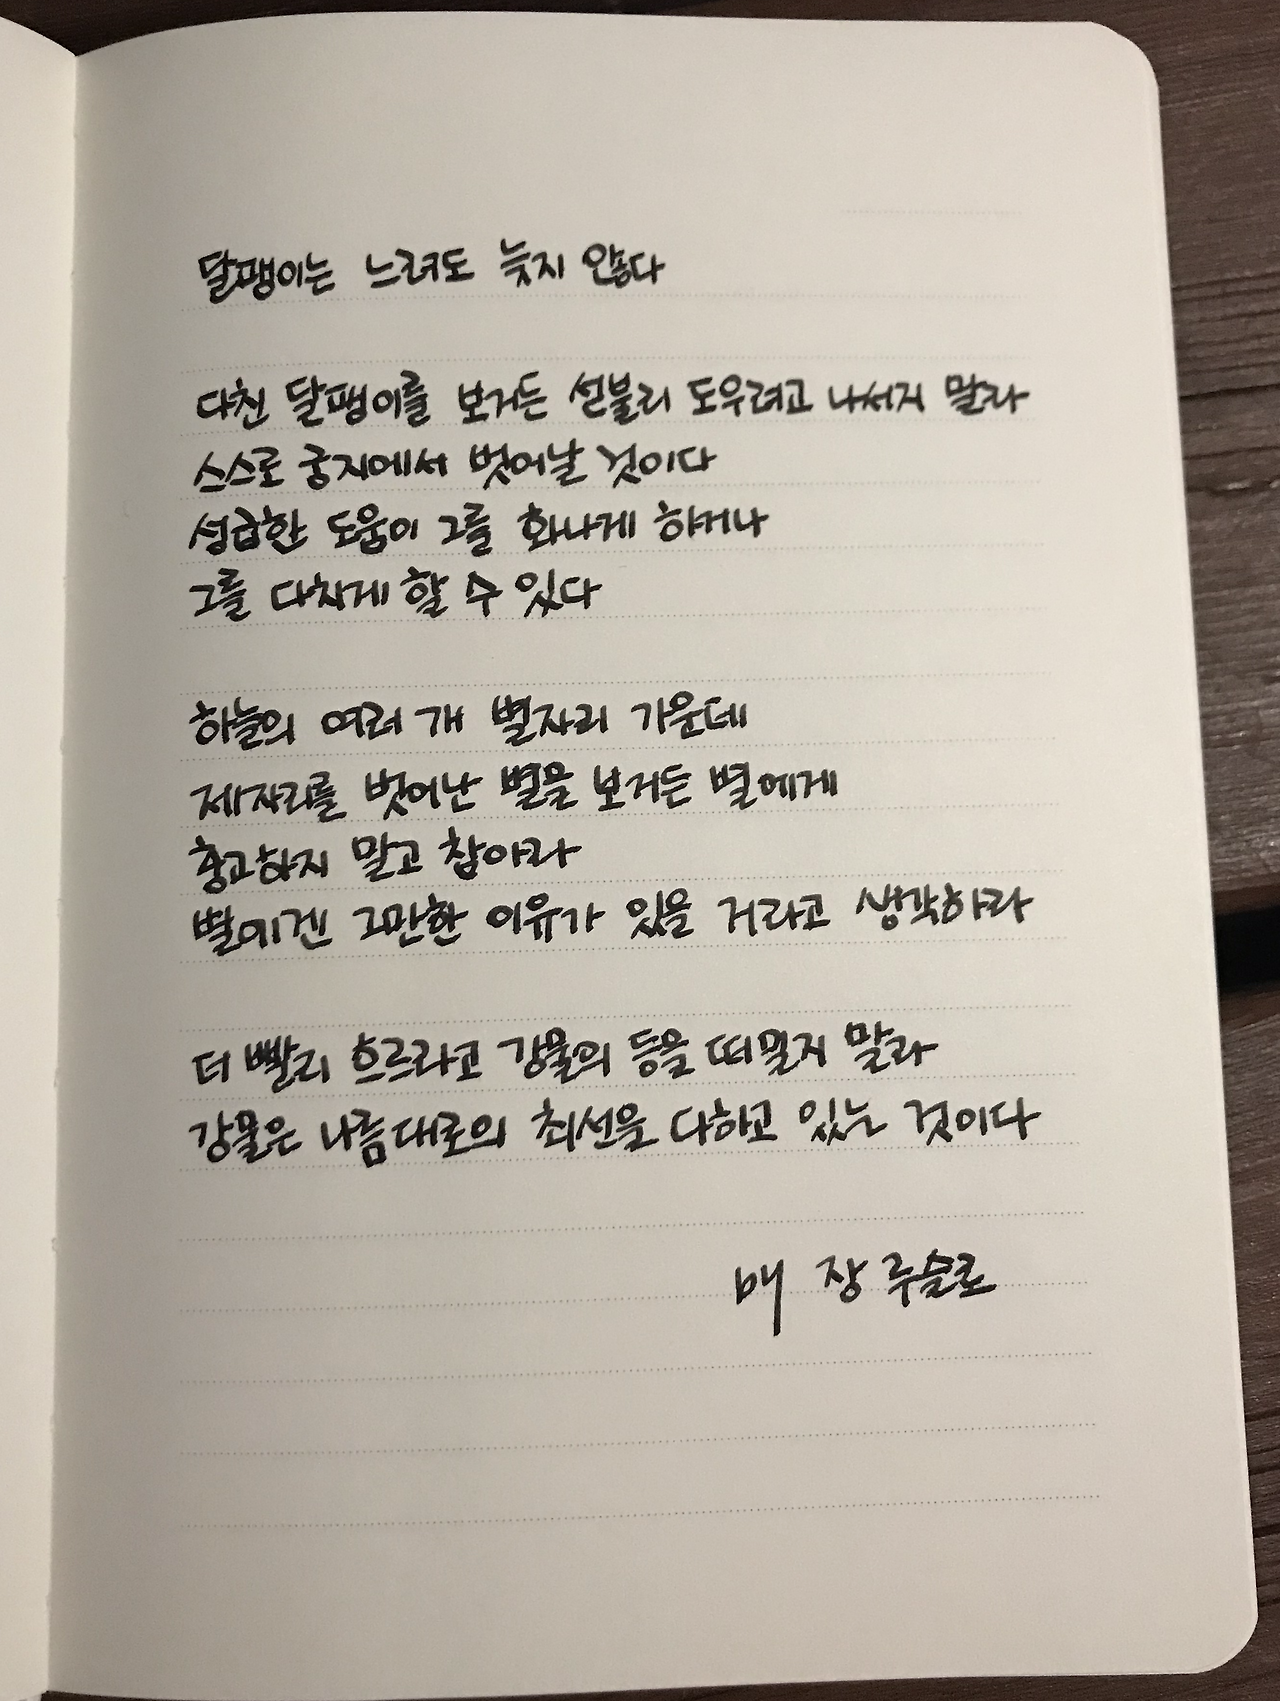 달팽이는 느려도 늦지 않다
다친 달팽이를 보거든 섣불리 도우려고 나서지 말라
스스로 궁지에서 벗어날 것이다
성급한 도움이 그를 화나게 하거나
그를 다치게 할 수 있다
하늘의 여러 개 별자리 가운데
제자리를 벗어난 별을 보거든 별에게
충고하지 말고 참아라
별에겐 그만한 이유가 있을 거라고 생각하라
더 빨리 흐르라고 강물의 등을 떠밀지 말라
강물은 나름대로의 최선을 다하고 있는 것이다
장 루슬로